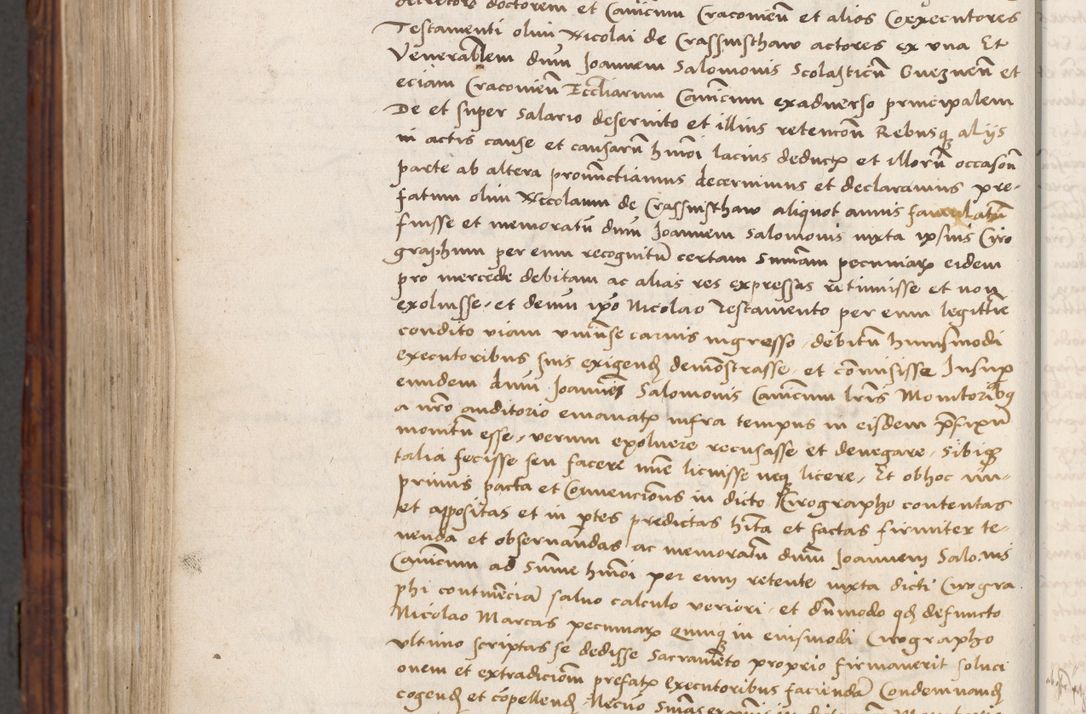 decretorum doctorem et Canicum Craconien et alios Coexecutores
Testamenti olim Nicolai de Crassinsthaw actores ex una Et
Venerablem dnum Joannem Salomonis Scolasticu Gneznen et
eciam Craconien Eccliarum Canicum exadverso principalem
De et super Salario deservito et illius retencon Rebusq alijs
in actis cause et causaru hmoi lacius deductis et illoru occason
parte ab altera pronunctiamus decernimus et declaramus pre-
fatum olim Nicolaum de Crassinsthaw aliquot annis famulatu
fuisse et memoratu dnum Joannem Salomonis iuxta ipsius Ciro
graphum per eum recognitu certam Sumam pecuniar eidem
pro mercede debitam ac alias res expressas retinuisse et non
exoluisse, et demu ipo Nicolao Testamento per eum legittie
condito viam universe carnis ingresso, debitu huiusmodi
executoribus suis exigend demonstrasse, et comisisse Insup
eundem dnum Joannem Salomonis Canicum lris Monitoribq
a nro auditorio emanatis infra tempus in eisdem prefixum
monitu esse, verum exoluere recusasse et denegare, Sibiq
talia fecisse seu facere mie licuisse neq licere, Et obhoc im-
primis pacta et Convencions in dicto Cirographo contentas
et appositas et in ptes predictas hita et factas firmiter te-
nenda et observandas ac memoratu dnum Joannem Salo.nis
Canicum ad Sume hmoi per eum retente iuxta dicti Cirogra
phi continencia salvo calculo veriori, et dummodo qd defuncto
Nicolao Marcas pecuniar quinq in eiusmodi Cirographo
ultimo scriptas se dedisse Sacramento proprio firmaverit soluci
onem et extradiciom prefatis executoribus facienda Condemnand
cogend et copellend, Necno